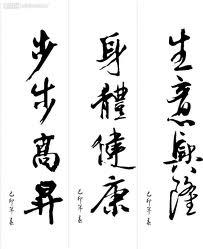 生意興隆
己卯年春
身體健康
己卯年春
步步高昇
己卯年春